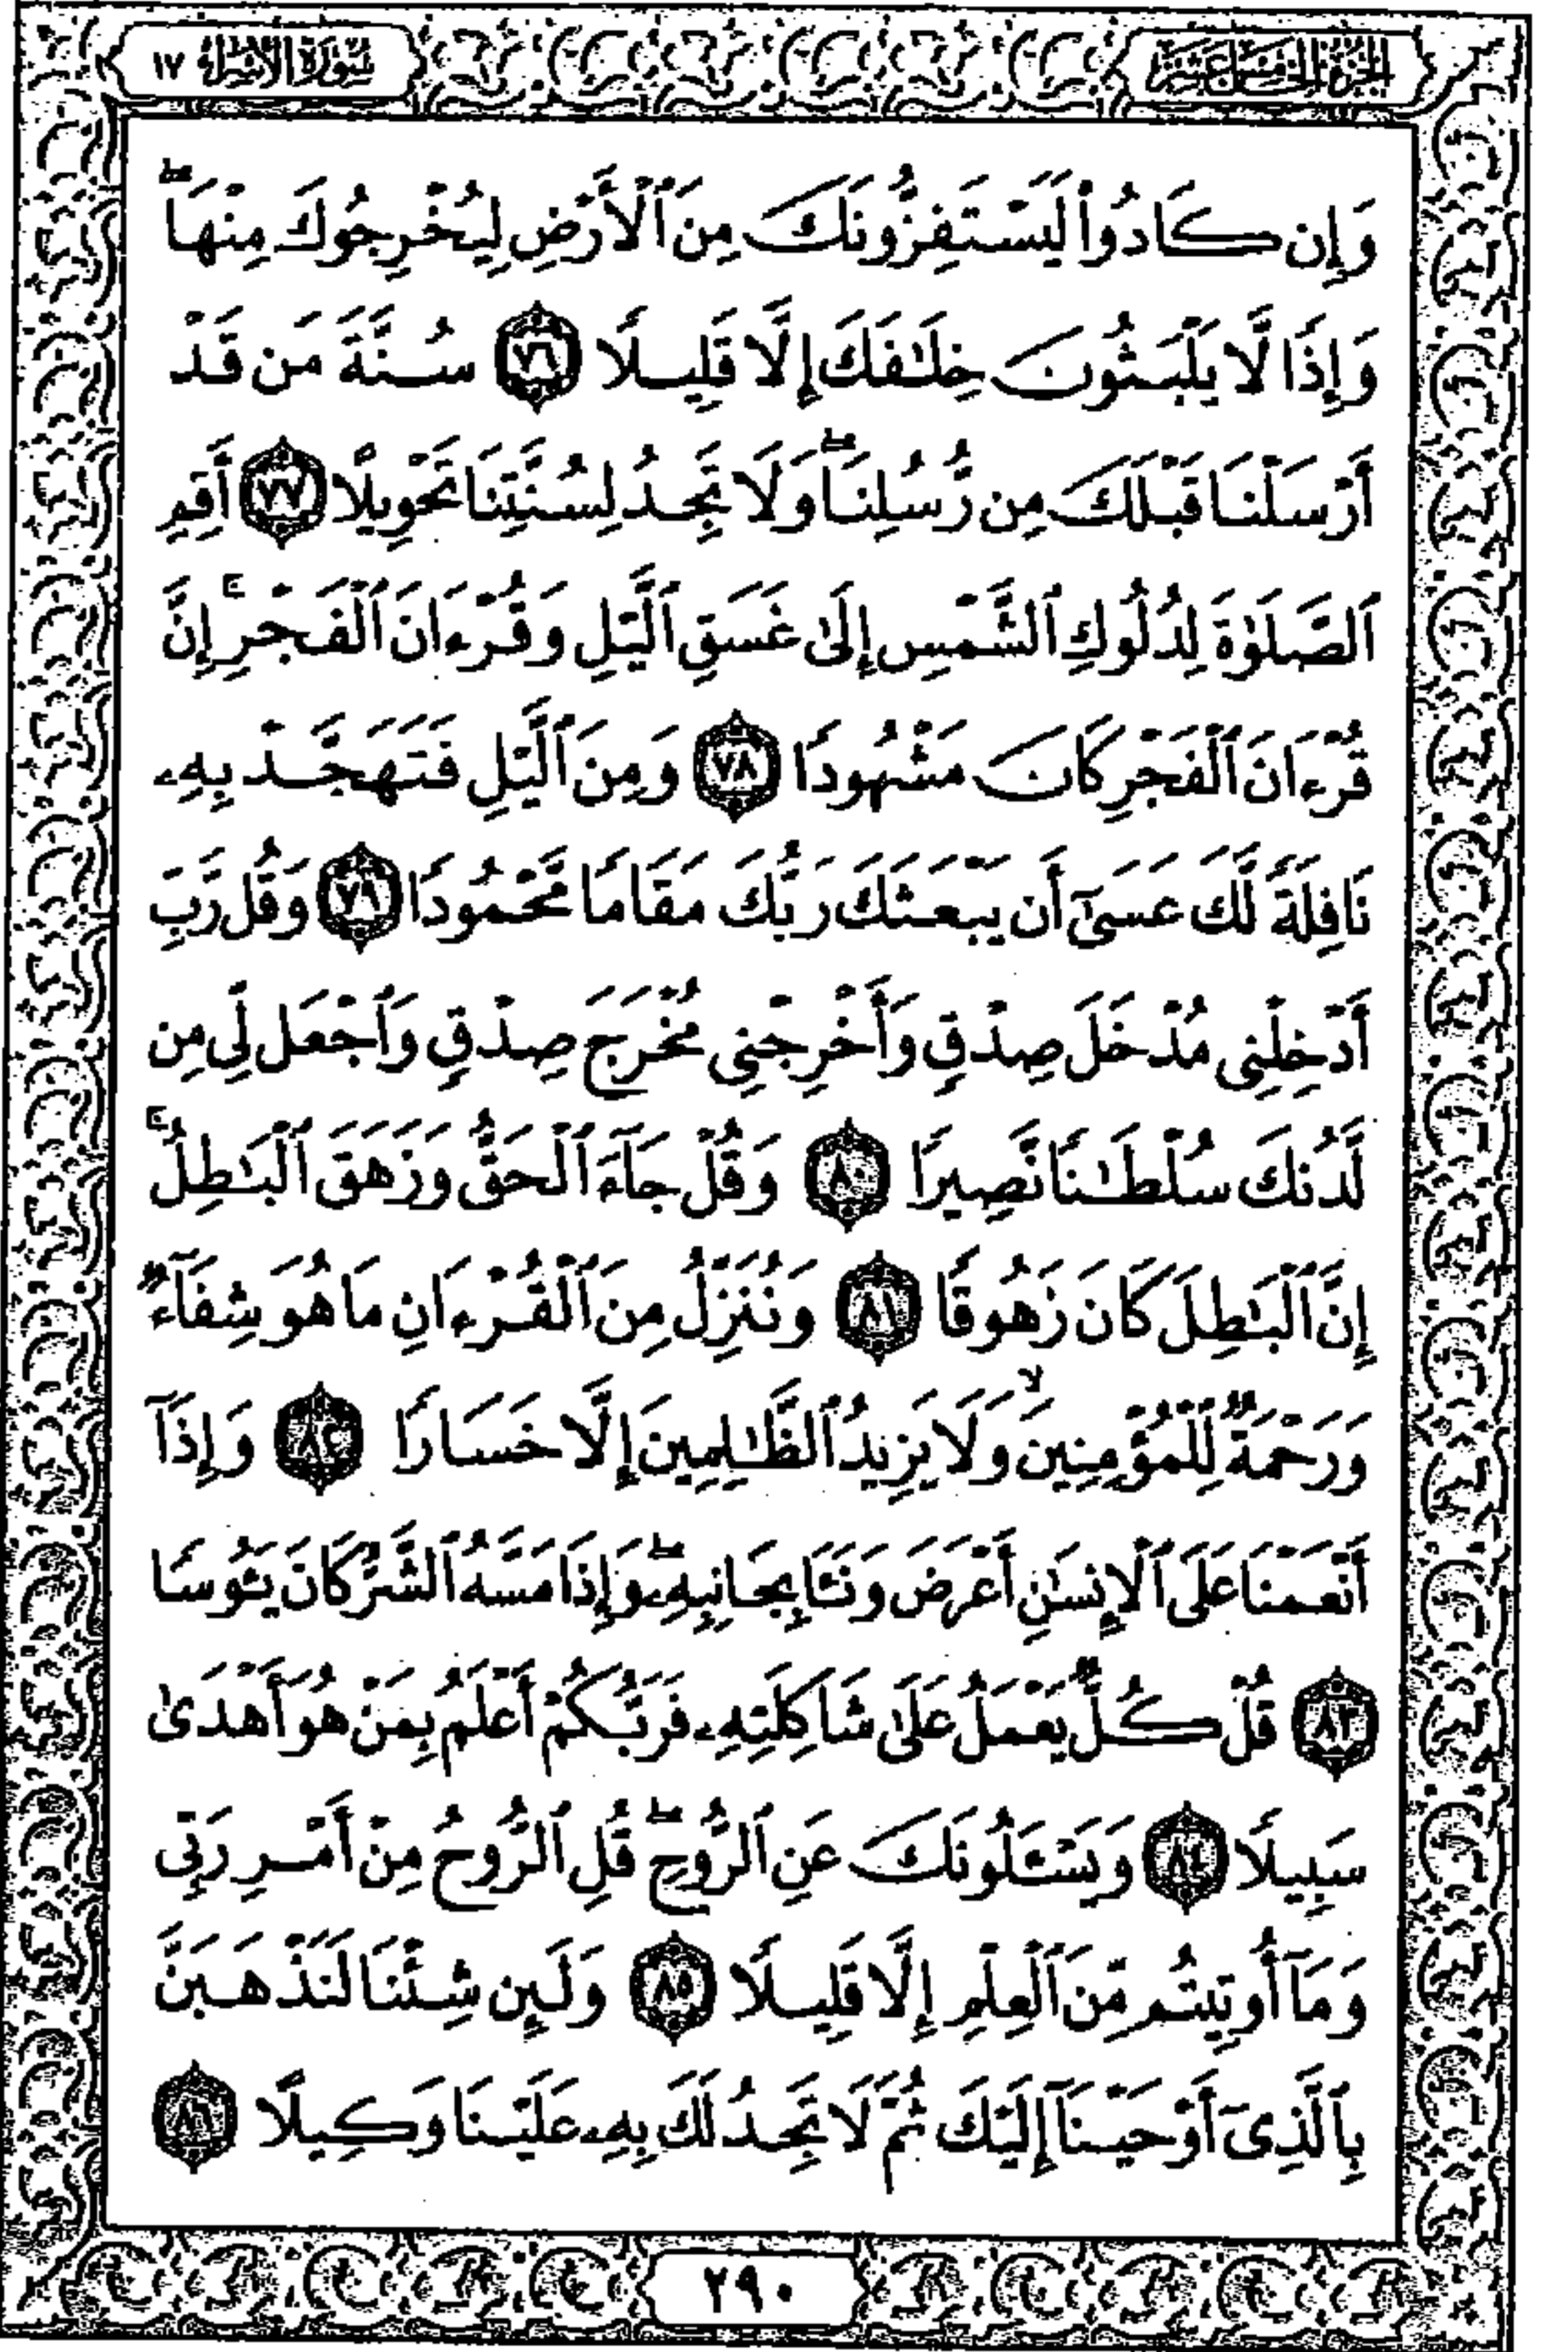 الجزء الخامس عشر
سورة الإسراء ١٧
وَإِن كَادُوا۟ لَيَسْتَفِزُّونَكَ مِنَ ٱلْأَرْضِ لِيُخْرِجُوكَ مِنْهَا ۖ
وَإِذًا لَّا يَلْبَثُونَ خِلَـٰفَكَ إِلَّا قَلِيلًا ٧٦ سُنَّةَ مَن قَدْ
أَرْسَلْنَا قَبْلَكَ مِن رُّسُلِنَا ۖ وَلَا تَجِدُ لِسُنَّتِنَا تَحْوِيلًا ٧٧ أَقِمِ
ٱلصَّلَوٰةَ لِدُلُوكِ ٱلشَّمْسِ إِلَىٰ غَسَقِ ٱلَّيْلِ وَقُرْءَانَ ٱلْفَجْرِ ۖ إِنَّ
قُرْءَانَ ٱلْفَجْرِ كَانَ مَشْهُودًا ٧٨ وَمِنَ ٱلَّيْلِ فَتَهَجَّدْ بِهِۦ
نَافِلَةً لَّكَ عَسَىٰٓ أَن يَبْعَثَكَ رَبُّكَ مَقَامًا مَّحْمُودًا ٧٩ وَقُل رَّبِّ
أَدْخِلْنِى مُدْخَلَ صِدْقٍ وَأَخْرِجْنِى مُخْرَجَ صِدْقٍ وَٱجْعَل لِّى مِن
لَّدُنكَ سُلْطَـٰنًا نَّصِيرًا ٨٠ وَقُلْ جَآءَ ٱلْحَقُّ وَزَهَقَ ٱلْبَـٰطِلُ ۚ
إِنَّ ٱلْبَـٰطِلَ كَانَ زَهُوقًا ٨١ وَنُنَزِّلُ مِنَ ٱلْقُرْءَانِ مَا هُوَ شِفَآءٌ
وَرَحْمَةٌ لِّلْمُؤْمِنِينَ ۙ وَلَا يَزِيدُ ٱلظَّـٰلِمِينَ إِلَّا خَسَارًا ٨٢ وَإِذَآ
أَنْعَمْنَا عَلَى ٱلْإِنسَـٰنِ أَعْرَضَ وَنَـَٔا بِجَانِبِهِۦ ۖ وَإِذَا مَسَّهُ ٱلشَّرُّ كَانَ يَـُٔوسًا
٨٣ قُلْ كُلٌّ يَعْمَلُ عَلَىٰ شَاكِلَتِهِۦ فَرَبُّكُمْ أَعْلَمُ بِمَنْ هُوَ أَهْدَىٰ
سَبِيلًا ٨٤ وَيَسْـَٔلُونَكَ عَنِ ٱلرُّوحِ ۖ قُلِ ٱلرُّوحُ مِنْ أَمْرِ رَبِّى
وَمَآ أُوتِيتُم مِّنَ ٱلْعِلْمِ إِلَّا قَلِيلًا ٨٥ وَلَئِن شِئْنَا لَنَذْهَبَنَّ
بِٱلَّذِىٓ أَوْحَيْنَآ إِلَيْكَ ثُمَّ لَا تَجِدُ لَكَ بِهِۦ عَلَيْنَا وَكِيلًا ٨٦
٢٩٠